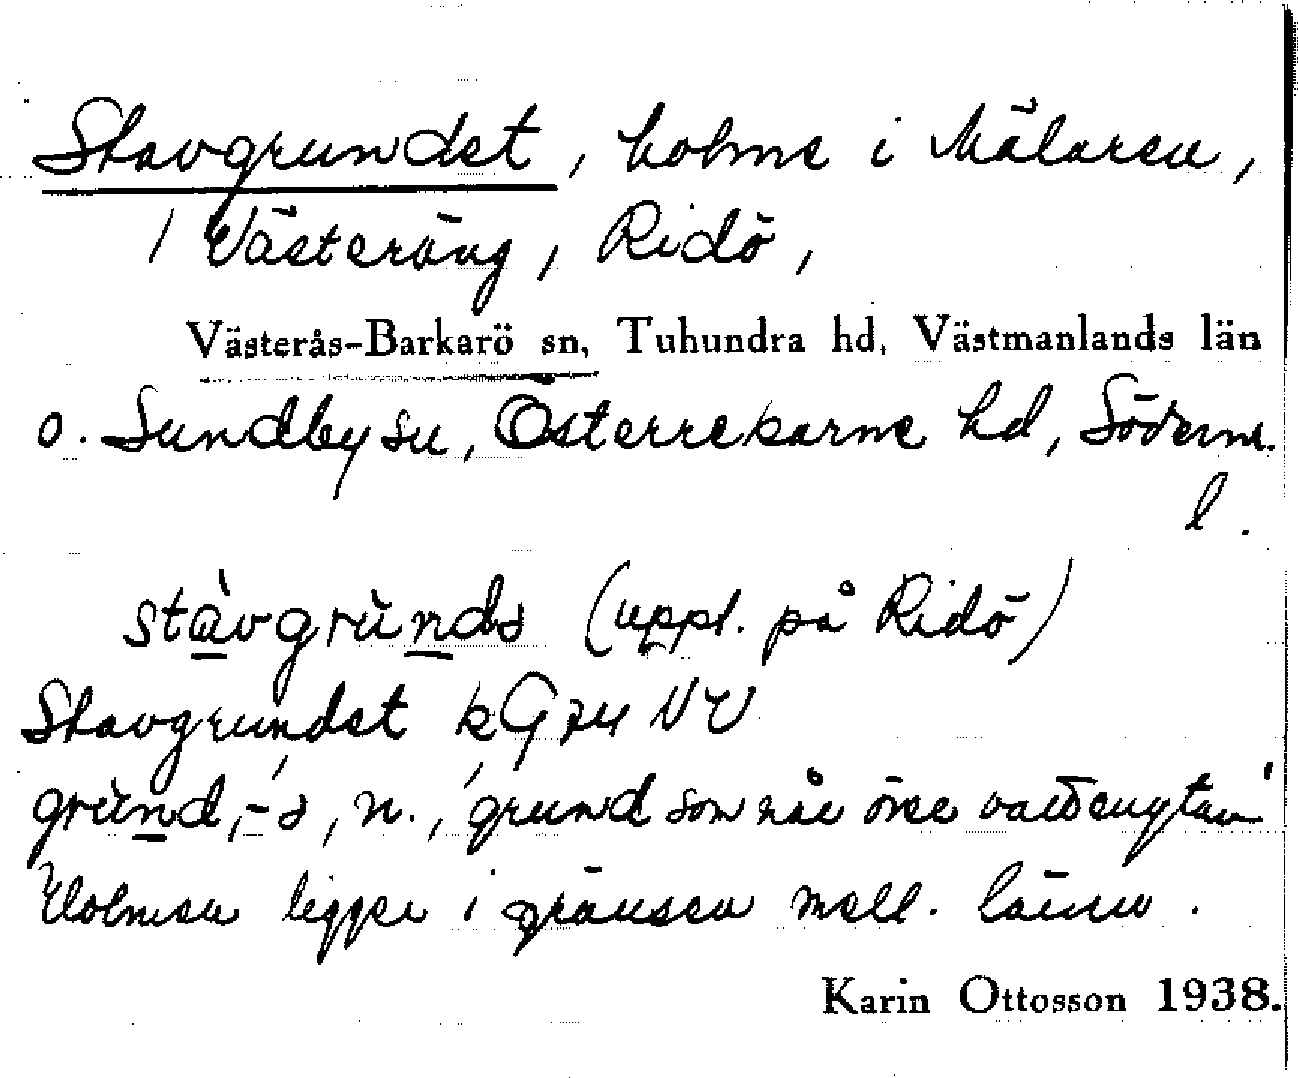 Stavgrundet, holme i Mälaren,
/ Västeräng, Ridö,
Västerås-Barkarö sn, Tuhundra hd, Västmanlands län
o. Sundby sn, Österrekarne hd, Söderm.
l.
stàvgrùnds (uppt. på Ridö)
Stavgrundet kG74 NV
grùnd, -s, n., 'grund som når över vattenytan'
Holmen ligger i gränsen mell. länen.
Karin Ottosson 1938.